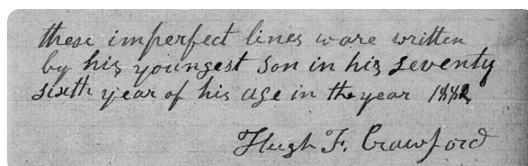 these imperfect lines ware written
by his youngest son in his seventy
sixth year of his age in the year 1882
Hugh F. Crawford